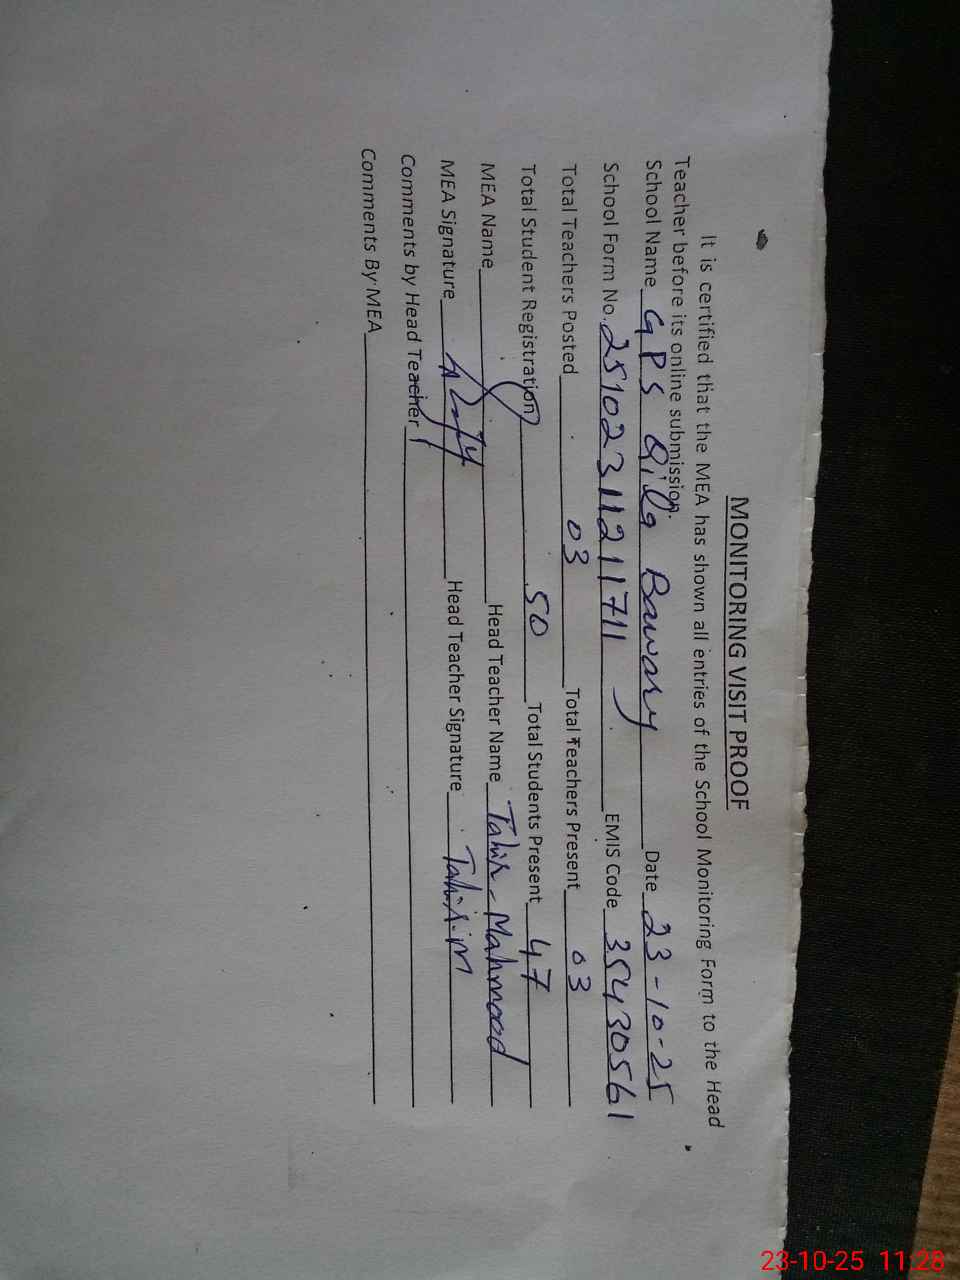 MONITORING VISIT PROOF
It is certified that the MEA has shown all entries of the School Monitoring Form to the Head
Teacher before its online submission.
School Name GPS Qila Bawary Date 23-10-25
School Form No. 25102311211711 EMIS Code 35430561
Total Teachers Posted 03 Total Teachers Present 03
Total Student Registration 50 Total Students Present 47
MEA Name Head Teacher Name Tahir Mahmood
MEA Signature Head Teacher Signature Tahir.m
Comments by Head Teacher
Comments By MEA
23-10-25 11:28